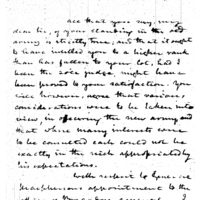 all that you say, my
dear sir, of your standing in the old
army is strictly true, and that it ought
to have intitled you to a higher rank
than has fallen to your lot, had I
been the sole judge might have
been proved to your satisfaction. You
will however know that various
considerations were to be taken into
view, in officering the new army and
that where many interests were
to be consulted each could not be
exactly in the rank appropriated by
his expectations.
With respect to General
Macpherson's appointment to the